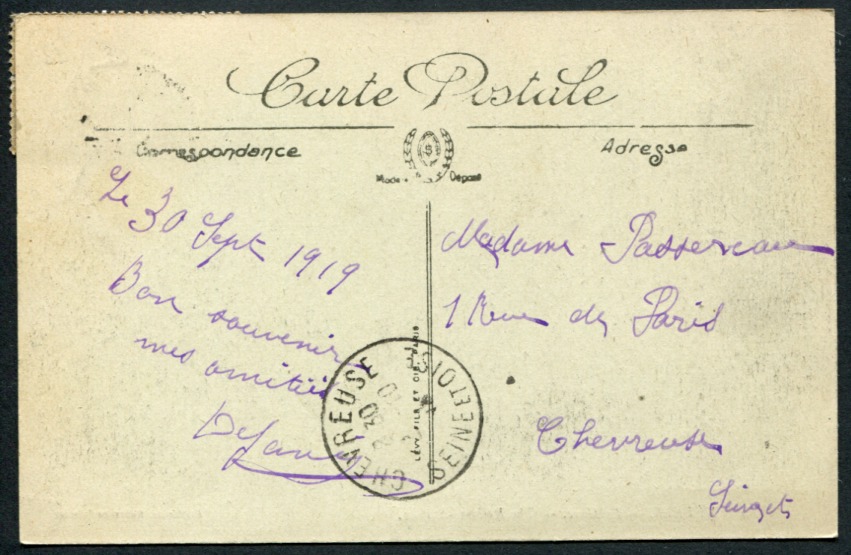 Carte Postale
Correspondance
Adresse
Modèle Déposé
Le 30 Sept 1919
Bon souvenir
mes amitiés
Madame Passereau
1 Rue de Paris
Chevreuse
LÉVY FILS ET CIE, PARIS
CHEVREUSE
SEINE ET OISE